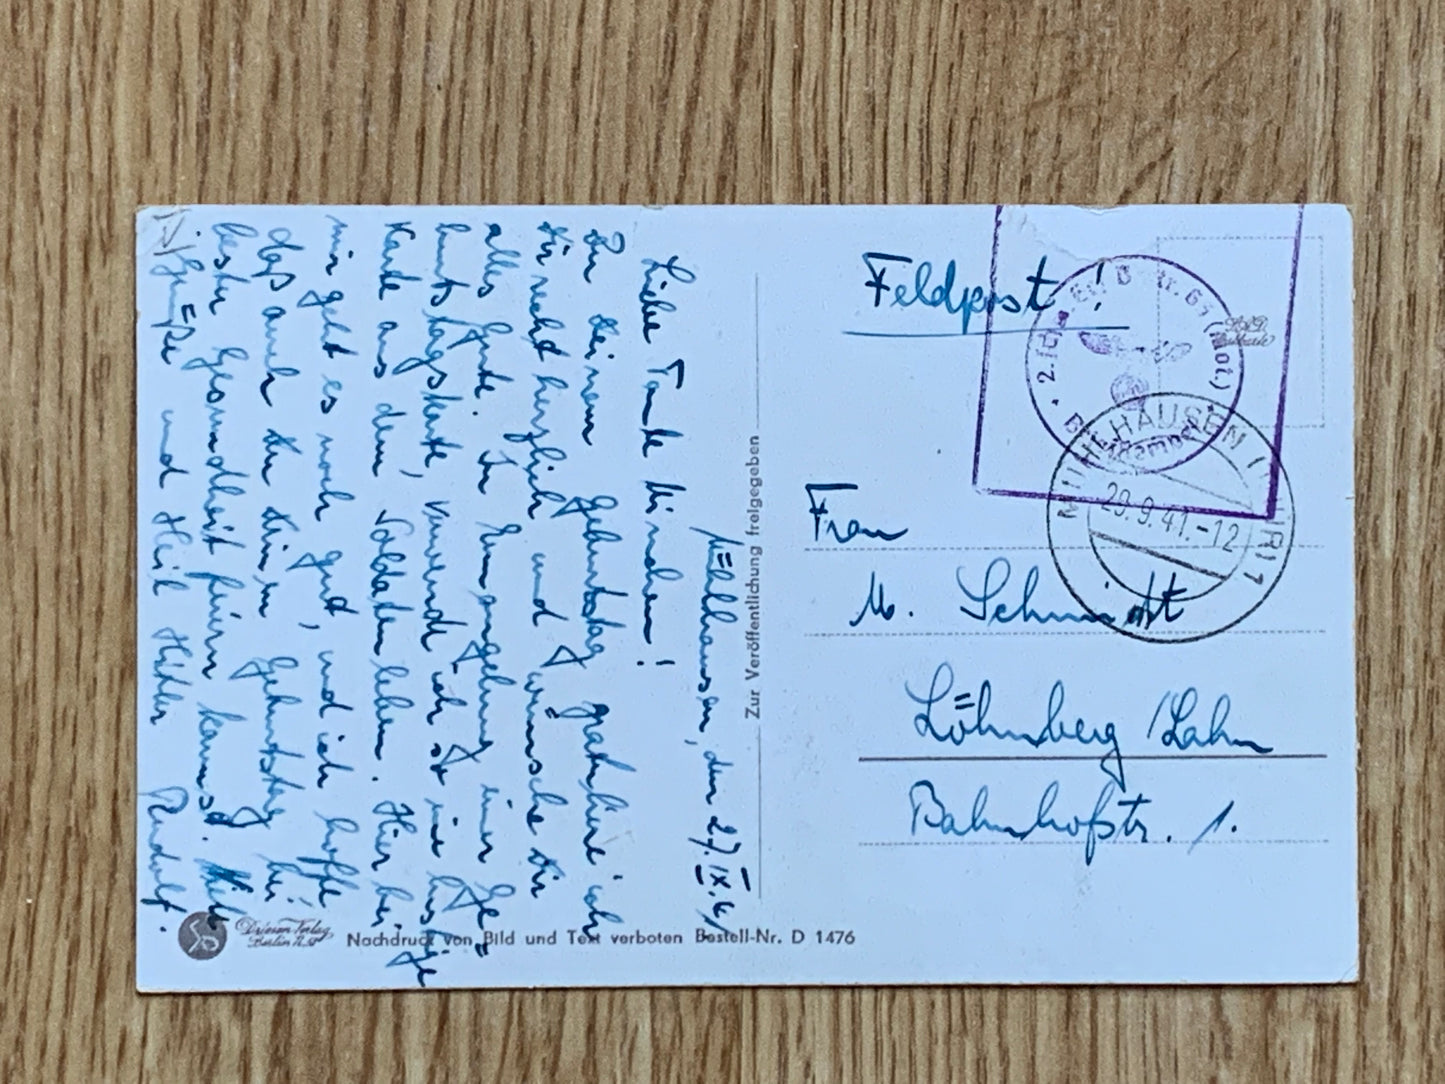 Mühlhausen, den 27.IX.41
Liebe Tante Minchen!
Zu Deinem Geburtstag gratuliere ich
Dir recht herzlich und wünsche Dir
alles Gute. In Ermangelung einer Ge=
burtstagskarte, verwende ich so eine lustige
Karte aus dem Soldatenleben. Hier bei
mir geht es noch gut, und ich hoffe
daß auch Du Deinen Geburtstag bei
bester Gesundheit feiern kannst.
Grüße und Heil Hitler Rudolf.
Feldpost!
Frau
M. Schmidt
Löhnberg/Lahn
Bahnhofstr. 1.
2. Nr. 61 (Mot.)
MÜHLHAUSEN (THÜR) 1
29.9.41.-12
Zur Veröffentlichung freigegeben
Driesen-Verlag
Berlin
Nachdruck von Bild und Text verboten Bestell-Nr. D 1476